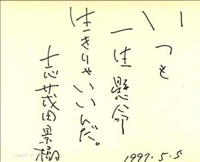 いつも
一生懸命
生きりゃいいんだ。
志茂田景樹
1997.5.5